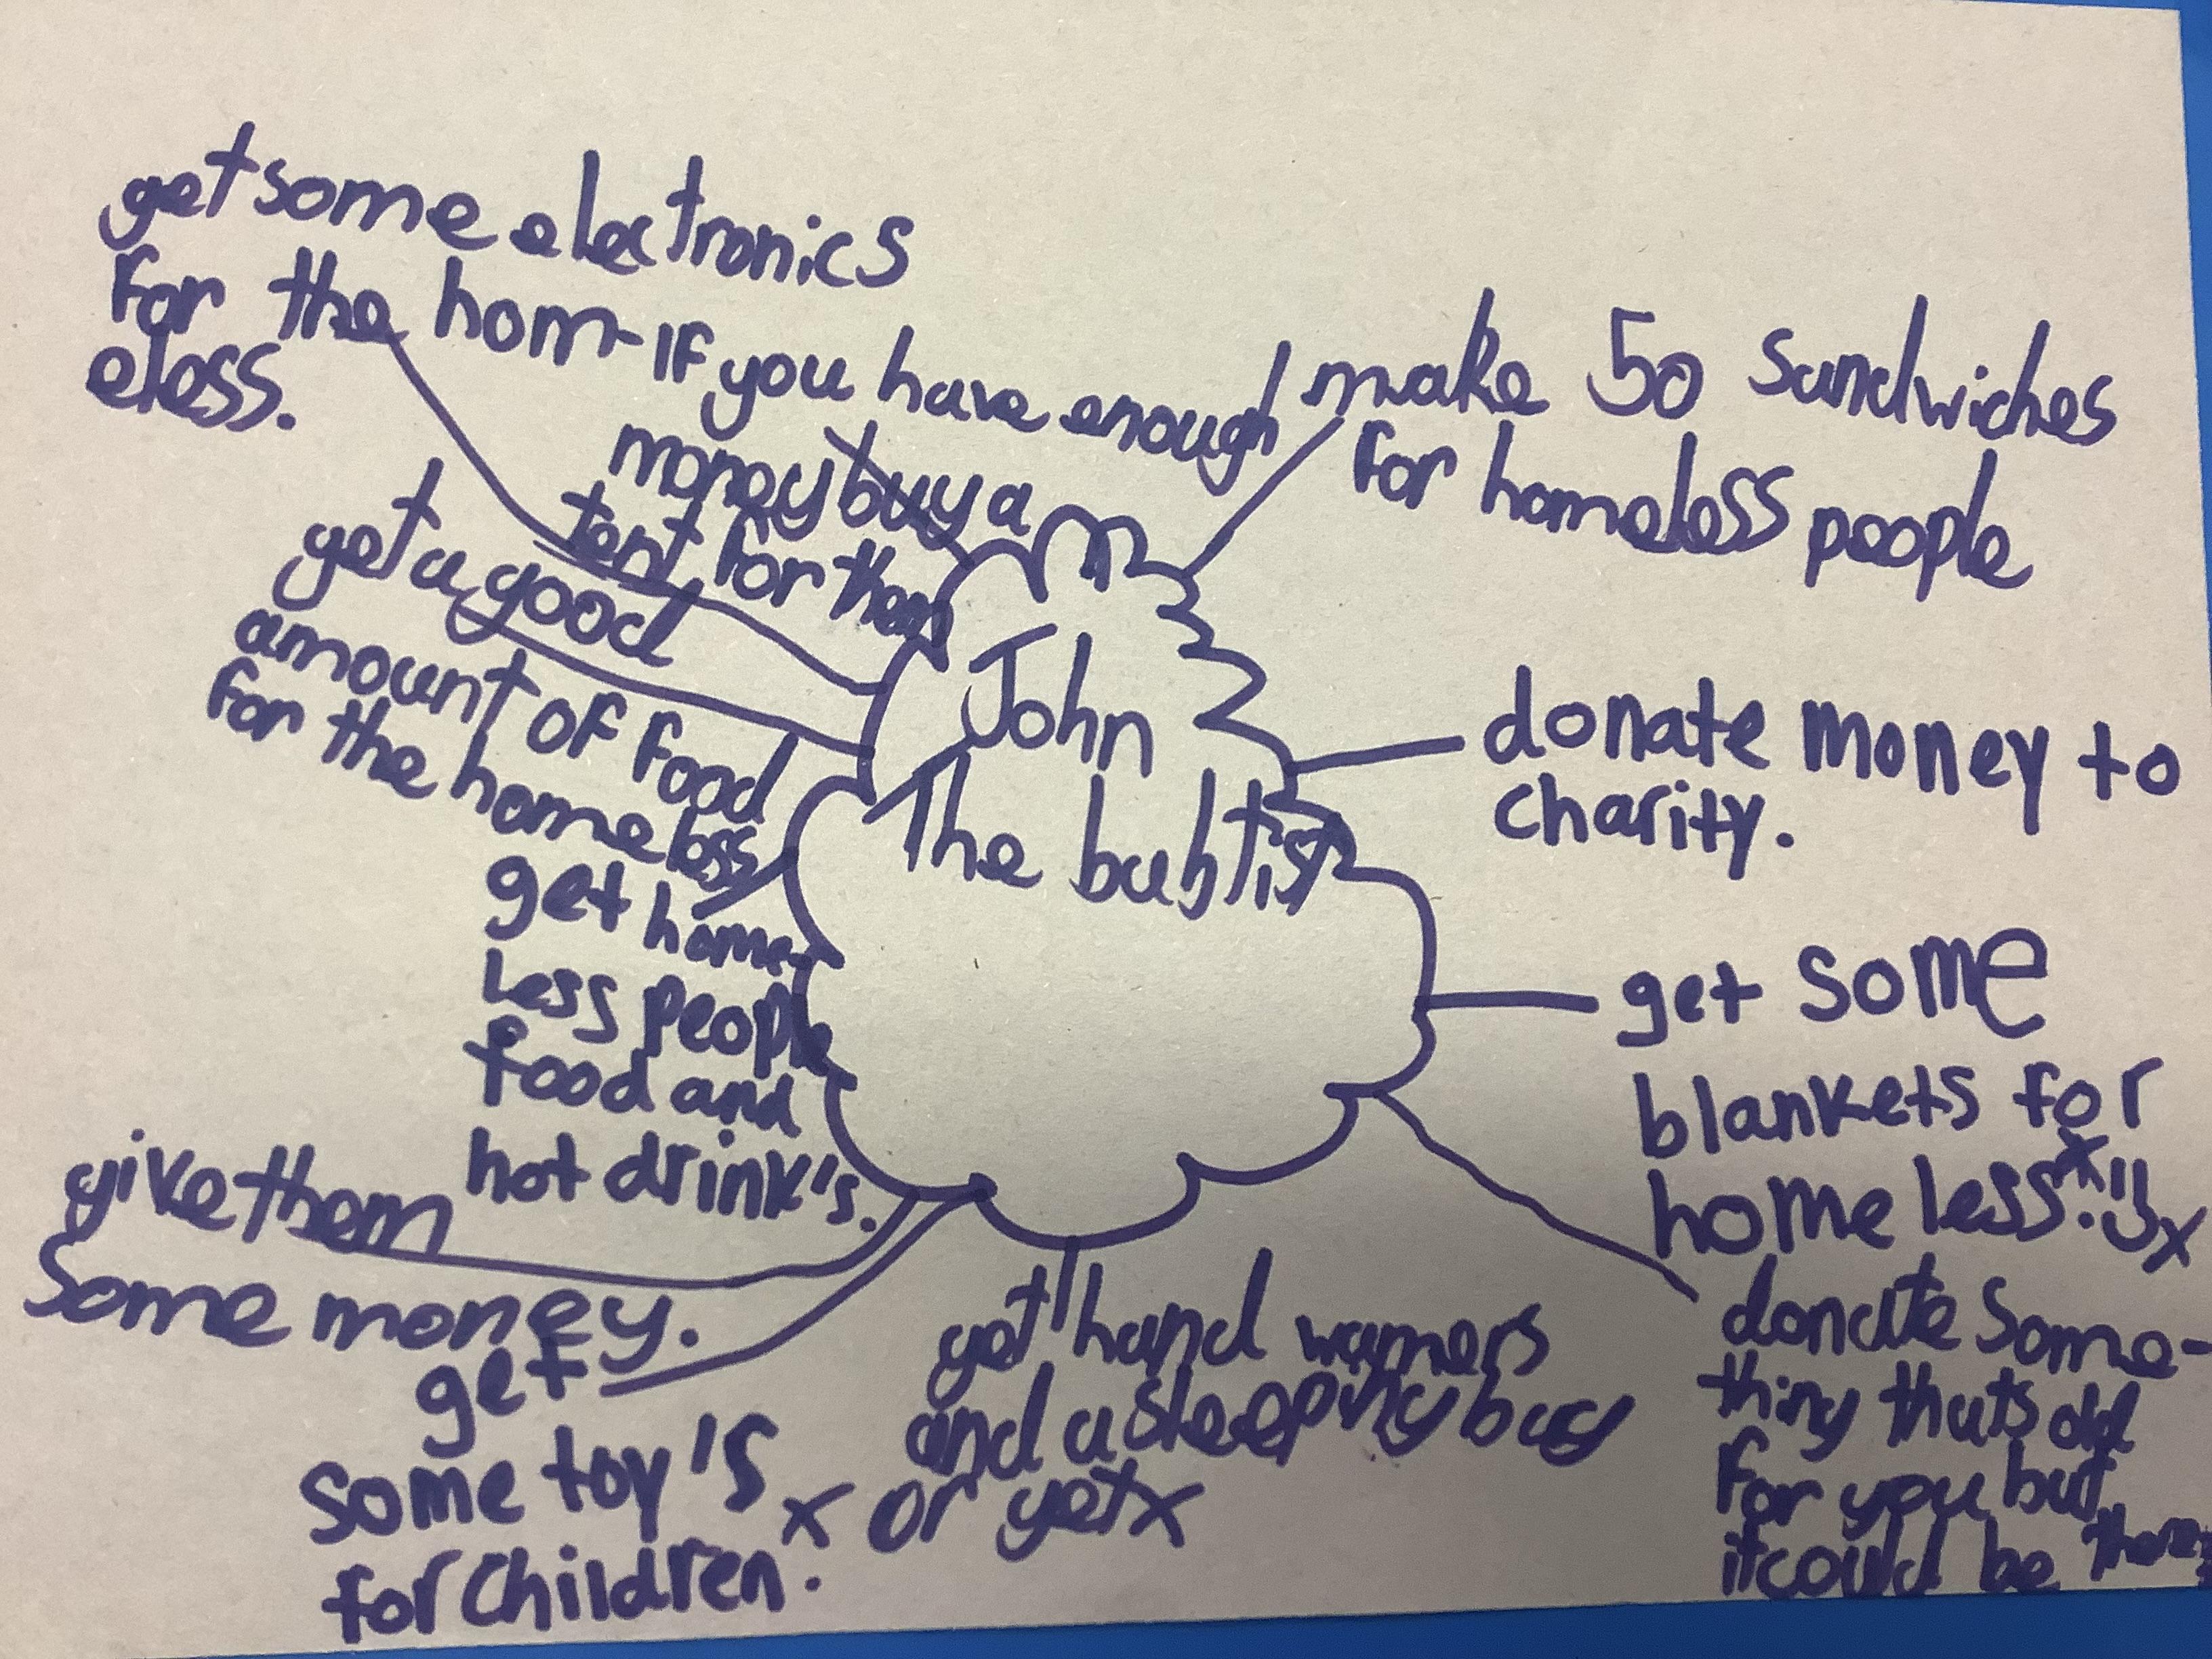 get some electronics
for the hom-
eless.
If you have enough
money buy a
tent for them
make 50 sandwiches
for homeless people
get a good
amount of food
for the homeless
John
The babtist
donate money to
charity.
get home-
less people
food and
hot drink's.
get some
blankets for
homeless
give them
Some money.
get
some toy's
for children.
get hand warmers
and a sleeping bag
x or get x
donate some-
thing thats old
for you but
it could be